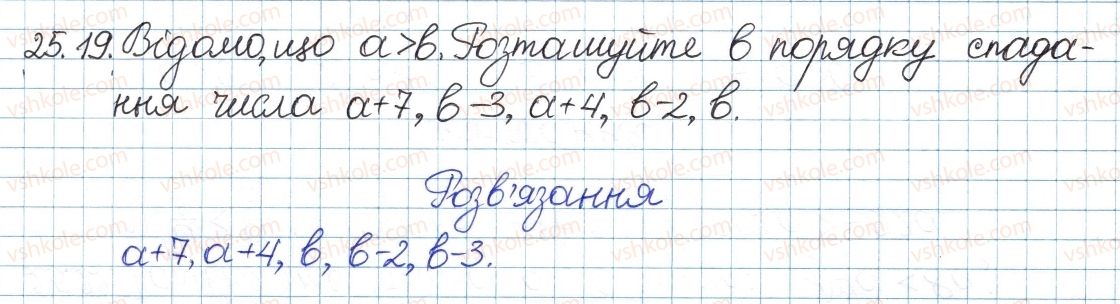 25.19. Відомо, що a>b. Розташуйте в порядку спада-
ння числа a+7, b-3, a+4, b-2, b.
Розв'язання
a+7, a+4, b, b-2, b-3.